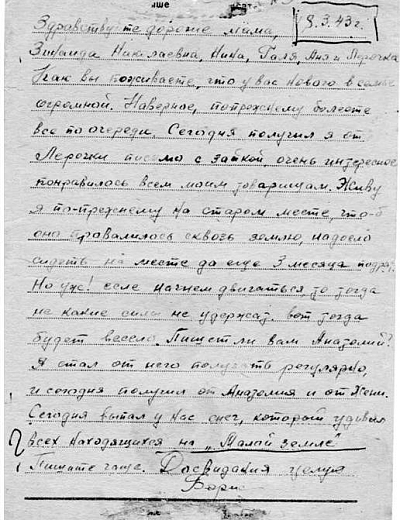 8.3.43 г.
Здравствуйте дорогие мама,
Зинаида Николаевна, Нина, Галя, Аня и Лерочка
Как вы поживаете, что у вас нового в семье
огромной. Наверное, попрежнему болеете
все по очереди. Сегодня получил я от
Лерочки письмо с зайкой очень интересное
понравилось всем моим товарищам. Живу
я по-прежнему на старом месте, что-б
оно провалилось сквозь землю, надоело
сидеть на месте да еще 3 месяца подряд.
Но уж! если начнем двигаться, то тогда
не какие силы не удержат. вот тогда
будет весело. Пишет ли вам Анатолий?
Я стал от него получать регулярно,
и сегодня получил от Анатолия и от Жени.
Сегодня выпал у нас снег, который удивил
всех находящихся на „Малой земле"
Пишите чаще. Досвидания целую
Борис